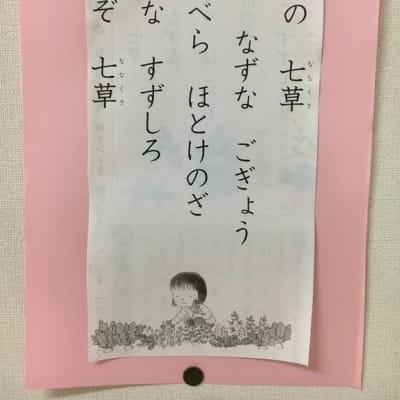 の 七草
なずな ごぎょう
べら ほとけのざ
な すずしろ
ぞ 七草
ななくさ
ななくさ